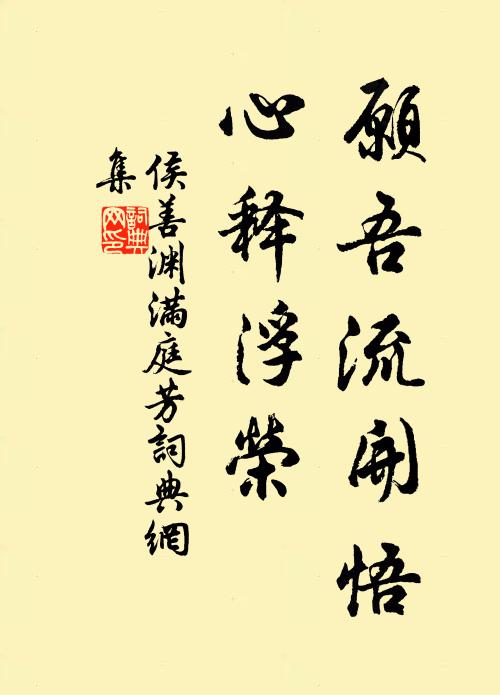 願吾流開悟
心释浮榮
侯善渊滿庭芳詞典網
集
詞典网印